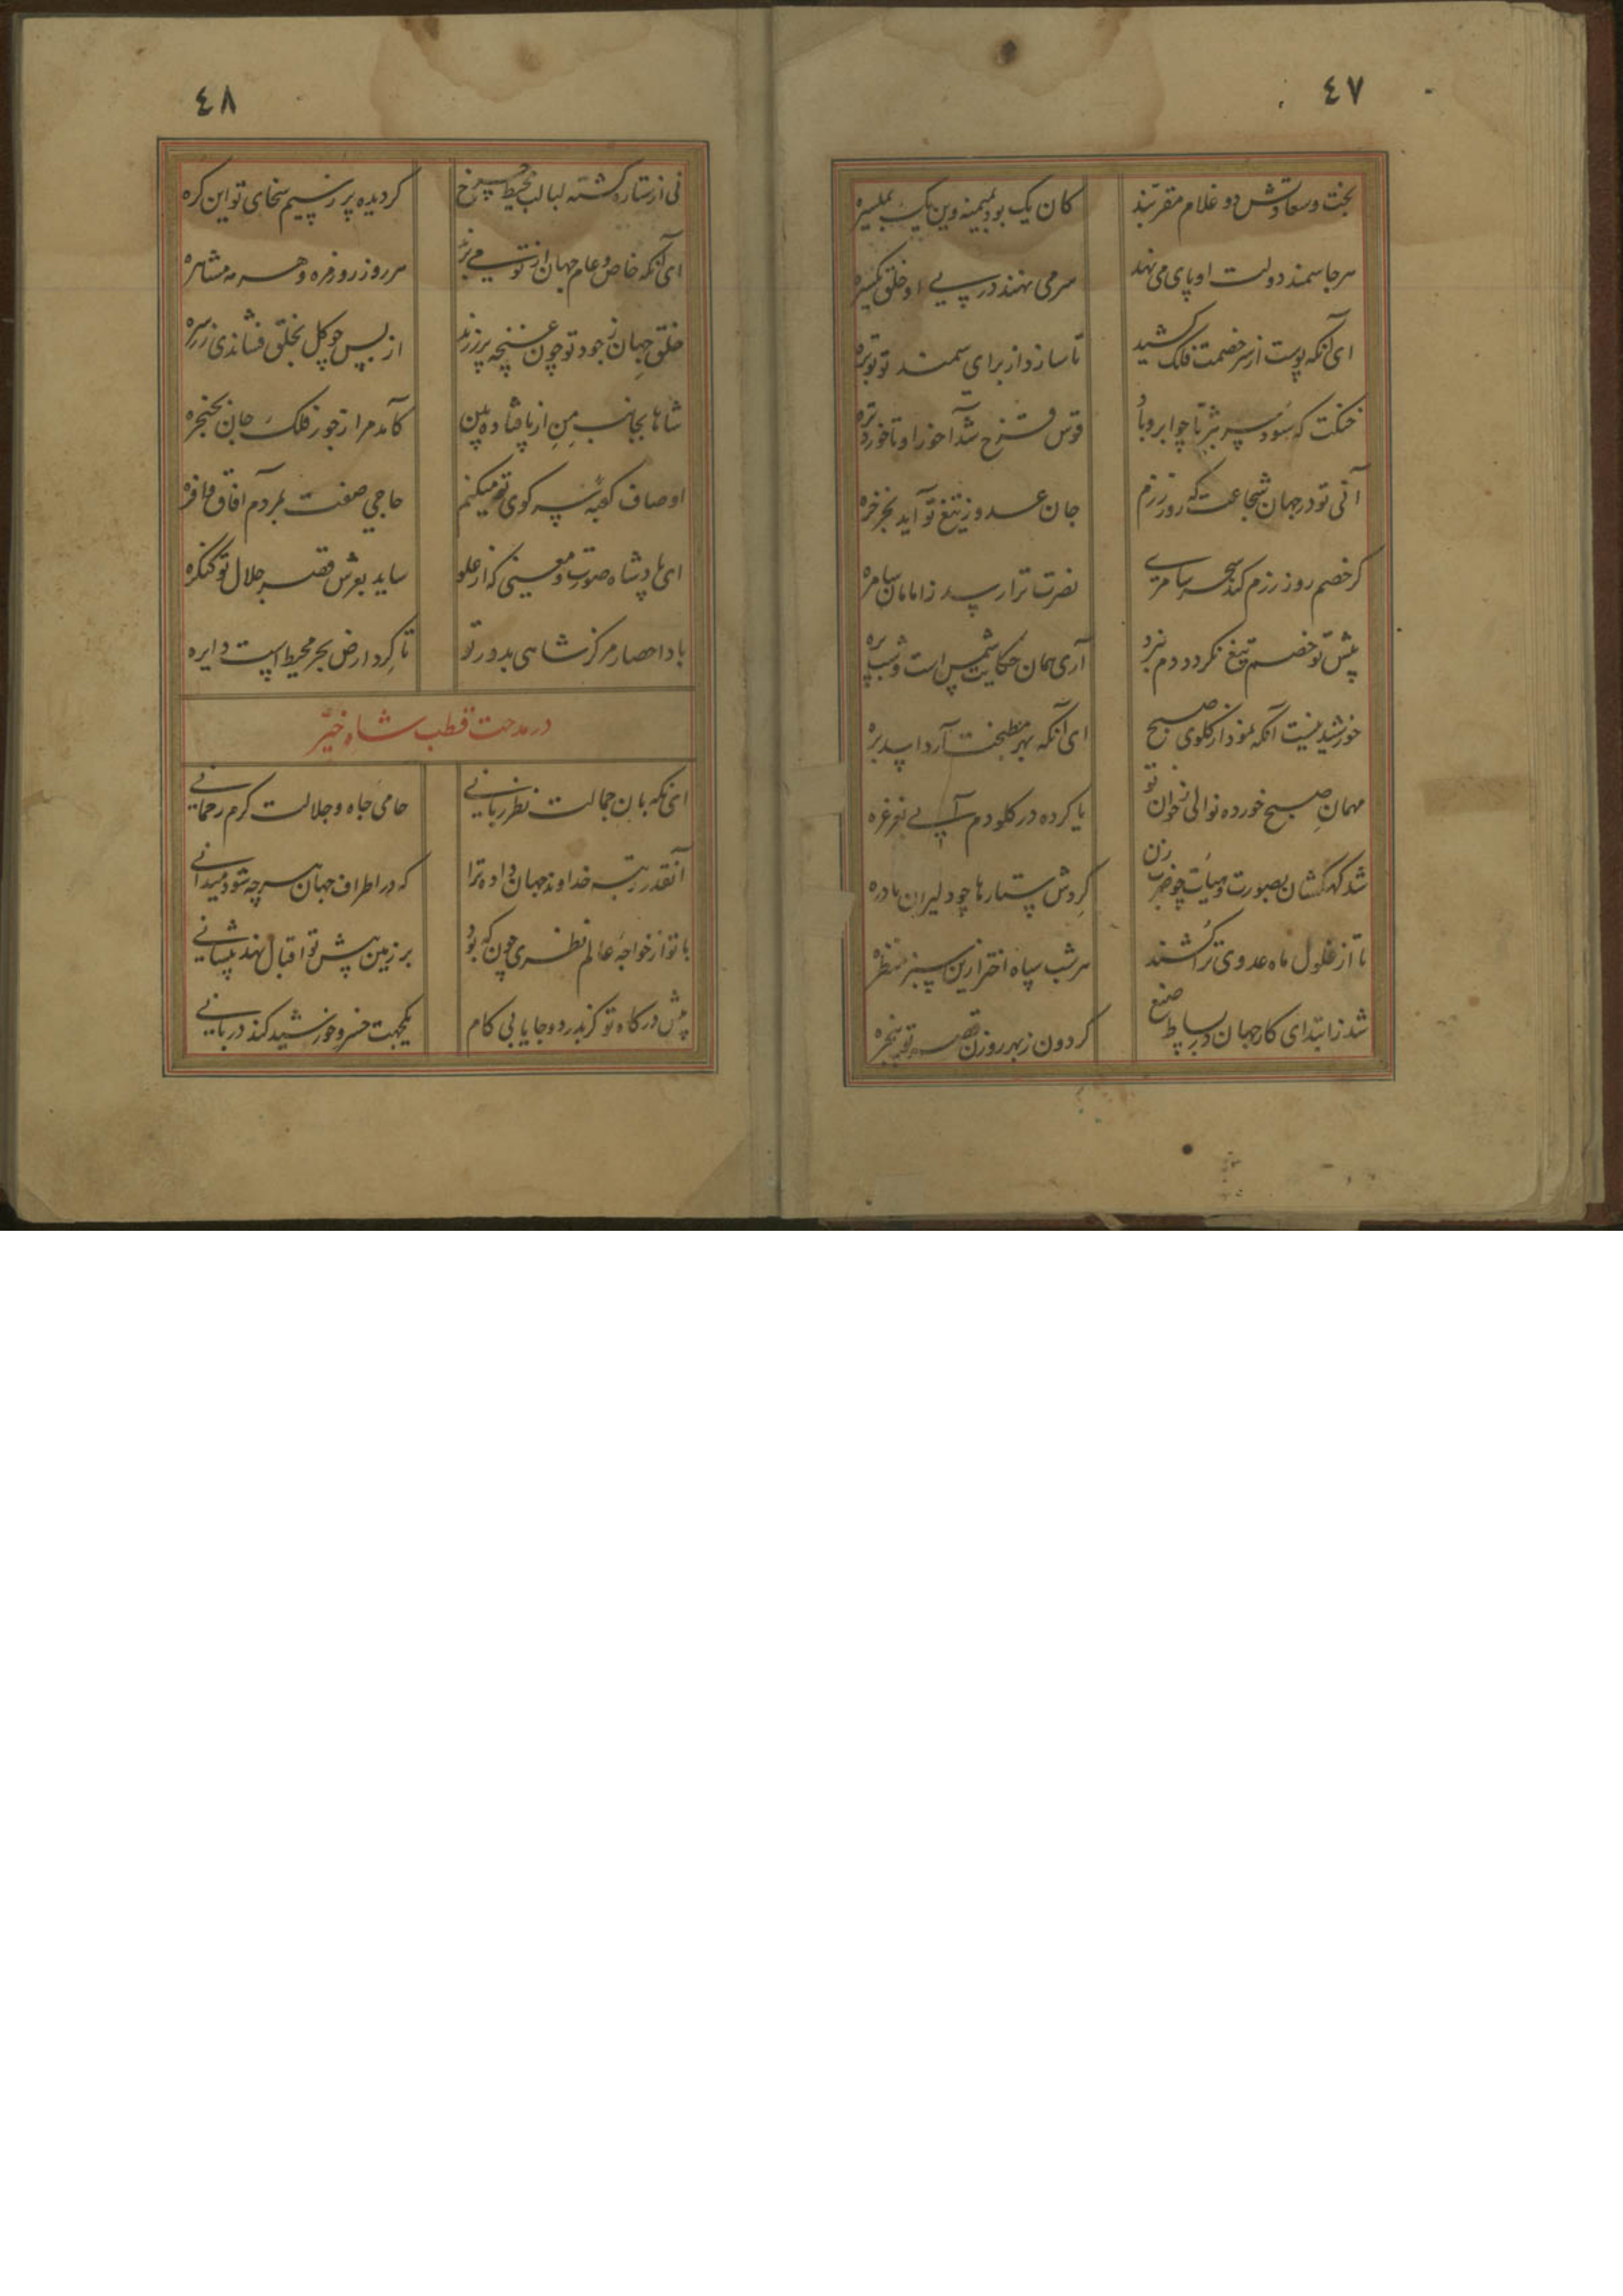 ٤٧
بخت و سعادتش دو غلام مقربند
کان یک بود بمیمنه وین یک بمیسره
هر جا سمند دولت او پای می نهد
سر می نهند در پی او خلق یکسره
ای آنکه پوست از سر خصمت فلک کشید
تا سازد از برای سمند تو توبره
خنکت که سود سر به ثریا چو ابر و باد
قوس قزح شد آخور او تا خورد تره
آنی تو در جهان شجاعت که روز رزم
جان عدو ز تیغ تو آید بخرخره
کر خصم روز رزم کند سحر سامری
نصرت ترا رسد ز امامان سامره
پیش تو خصم تیغ نکردد دم نبرد
آری همان حکایت شمس است و شب پره
خورشید نیست آنکه نمود از کلوی صبح
ای آنکه بهر مطبخت آرد اسد بره
مهمان صبح خورده نوالی ز خوان تو
یا کرده در کلو دم آبی بغرغره
شد کهکشان بصورت و هیأت چو خرب زن
کردش ستارها چو دلیران نادره
تا از غلول ماه عدوی ترا کشند
هر شب سپاه اختر ازین سبز منظره
شد ز ابتدای کار جهان در بساط صنع
کردون ز بهر روزن قصر تو پنجره
٤٨
نی از ستاره کشته لبالب محیط چرخ
کردیده پر ز سیم سخای تو این کره
ای آنکه خاص و عام جهان از تو می برند
هر روز روزمره و هر مه مشاهره
خلق جهان ز جود تو چون غنچه پر زرند
از بس چو کل بخلق فشاندی زر سره
شاها بجانب من از پا فتاده بین
کامد مرا ز جور فلک جان بحنجره
اوصاف کعبه سر کوی تو میکنم
حاجی صفت بمردم آفاق فاخره
ای پادشاه صورت و معنی که از علو
ساید بعرش قصر جلال تو کنکره
بادا حصار مرکز شاهی بدور تو
تا کرد ارض بحر محیط است دایره
در مدحت قطب شاه خیّر
ای نکهبان جمالت نظر ربانی
حامی جاه و جلالت کرم رحمانی
آنقدر رتبه خداوند جهان داده ترا
که در اطراف جهان هر چه شود میدانی
با تو از خواجه عالم نظری چون که بود
بر زمین پیش تو اقبال نهد پیشانی
پیش درکاه تو کز بدر دوجا یابی کام
یکجهت خسرو خورشید کند دربانی